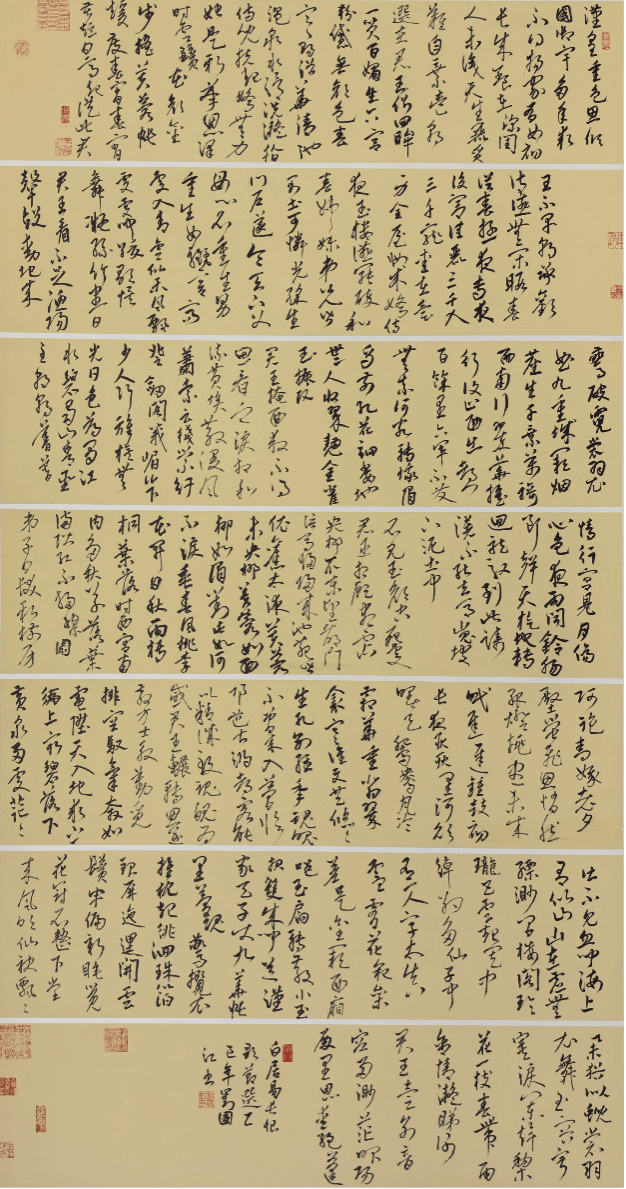 漢皇重色思傾
國御宇多年求
不得楊家有女初
長成養在深閨
人未識天生麗質
難自棄一朝
選在君王側回眸
一笑百媚生六宮
粉黛無顏色春
寒賜浴華清池
溫泉水滑洗凝脂
侍兒扶起嬌無力
始是新承恩澤
時雲鬢花顏金
步搖芙蓉帳
暖度春宵春宵
苦短日高起從此君
王不早朝承歡
侍宴無閑暇春
從春遊夜專夜
後宮佳麗三千人
三千寵愛在一
身金屋妝成嬌侍
夜玉樓宴罷醉和
春姊妹弟兄皆
列土可憐光彩生
門戶遂令天下父
母心不重生男
重生女驪宮高
處入青雲仙樂風飄
處處聞緩歌慢
舞凝絲竹盡日
君王看不足漁陽
鼙鼓動地來
驚破霓裳羽衣
曲九重城闕煙
塵生千乘萬騎
西南行翠華搖
行復止西出都門
百餘里六軍不發
無奈何宛轉蛾眉
馬前死花鈿委地
無人收翠翹金雀
玉搔頭
君王掩面救不得
回看血淚相和
流黃埃散漫風
蕭索雲棧縈紆
登劍閣峨嵋山下
少人行旌旗無
光日色薄蜀江
水碧蜀山青聖
主朝朝暮暮
情行宮見月傷
心色夜雨聞鈴腸
斷聲天旋地轉
迴龍馭到此躊
躇不能去馬嵬坡
下泥土中
不見玉顏空死處
君臣相顧盡霑
衣東望都門
信馬歸歸來池苑皆
依舊太液芙蓉
未央柳芙蓉如面
柳如眉對此如何
不淚垂春風桃李
花開日秋雨梧
桐葉落時西宮南
內多秋草落葉
滿階紅不掃梨園
弟子白髮新椒房
阿監青娥老夕
殿螢飛思悄然
孤燈挑盡未成
眠遲遲鐘鼓初
長夜耿耿星河欲
曙天鴛鴦瓦冷
霜華重翡翠
衾寒誰與共悠悠
生死別經年魂魄
不曾來入夢臨
邛道士鴻都客能
以精誠致魂魄為
感君王輾轉思遂
教方士殷勤覓
排空馭氣奔如
電升天入地求之
遍上窮碧落下
黃泉兩處茫茫
皆不見忽聞海上
有仙山山在虛無
縹渺間樓閣玲
瓏五雲起其中
綽約多仙子中
有一人字太真
雪膚花貌參
差是金闕西廂
叩玉扃轉教小玉
報雙成聞道漢
家天子使九華帳
裏夢魂驚攬衣
推枕起徘徊珠箔
銀屏迤邐開雲
鬢半偏新睡覺
花冠不整下堂
來風吹仙袂飄飄
舉猶似霓裳羽
衣舞玉容寂
寞淚闌干梨
花一枝春帶雨
含情凝睇謝
君王一別音
容兩渺茫昭陽
殿裏恩愛絕蓬
白居易長恨
歌節選乙
巳年劉國
江書